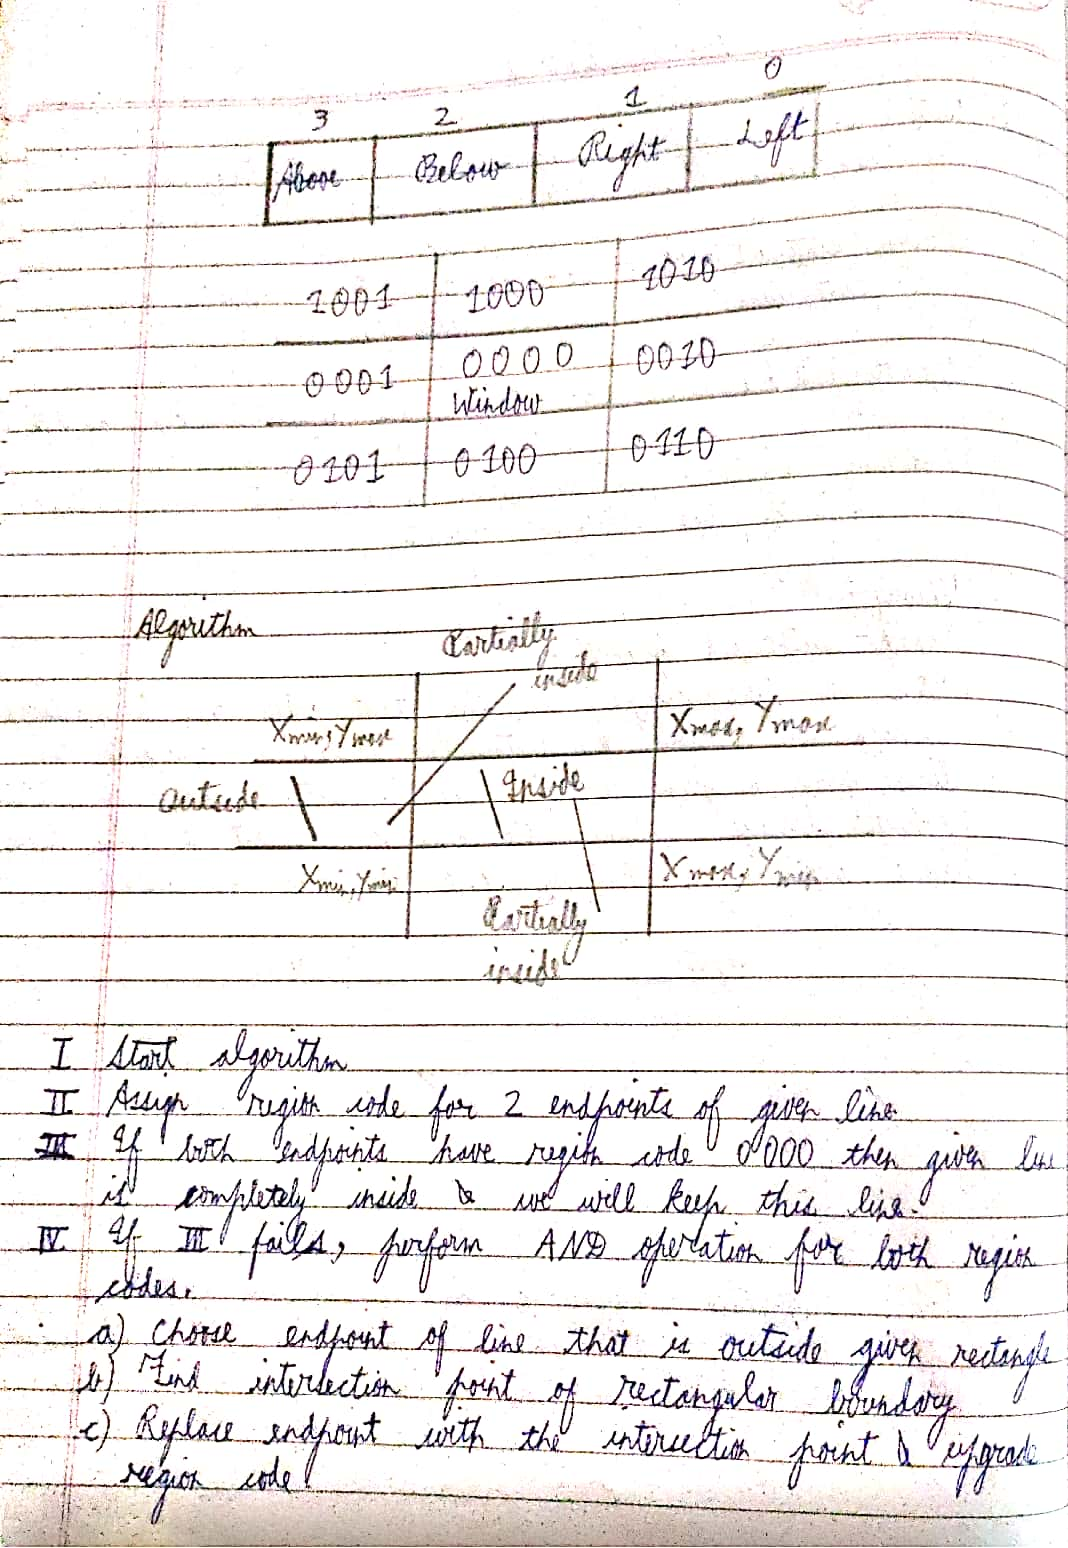 3 2 1 0
Above Below Right Left
1001 1000 1010
0001 0000 0010
Window
0101 0100 0110
Algorithm
Partially
inside
Xmin, Ymax Xmax, Ymax
Outside Inside
Xmin, Ymin Xmax, Ymin
Partially
inside
I Start algorithm
II Assign region code for 2 endpoints of given line
III If both endpoints have region code 0000 then given line
is completely inside & we will keep this line.
IV If III fails, perform AND operation for both region
codes.
a) Choose endpoint of line that is outside given rectangle
b) Find intersection point of rectangular boundary
c) Replace endpoint with the intersection point & upgrade
region code